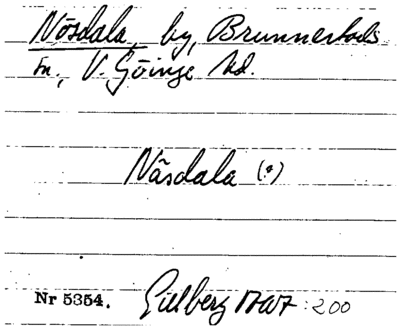 Nösdala, by, Brunnestads
sn., V. Göinge hd.
Nåsdala (?)
Nr 5354. Gillberg 1767 : 200